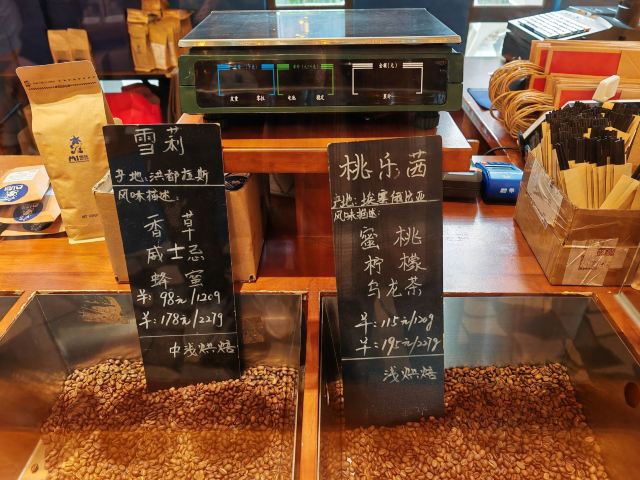 雪莉
产地:洪都拉斯
风味描述:
香草
威士忌
蜂蜜
¥:98元/120g
¥:178元/227g
中浅烘焙
桃乐茜
产地:埃塞俄比亚
风味描述:
蜜桃
柠檬
乌龙茶
¥:115元/120g
¥:195元/227g
浅烘焙